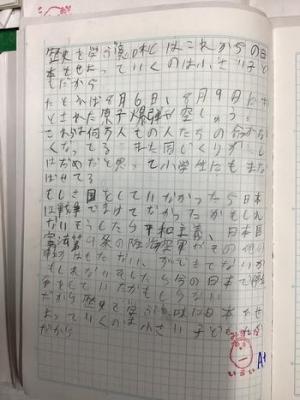 歴史を学ぶ意味はこれからの日
本をせよっていくのは小さい子ど
もだから
たとえば8月6日、8月9日に落
とされた原子爆弾空しゅう、
これらは何万人もの人たちの命がな
くなってる また同じくりかえし
はだめだと思って小学生にもまな
ばせてる
もしさ国をしていなかったら日本
は戦争でまけてなかったかもしれ
ないそうしたら平和主義、日本国
憲法第9条の陸海空軍その他の
戦力はもたない、ができてないか
もしれないそしたら今の日本で戦
争をしていたかもしらない
だから歴史を学ぶ意味は日本をせ
よっていくのは小さい子どもだ
から
A+